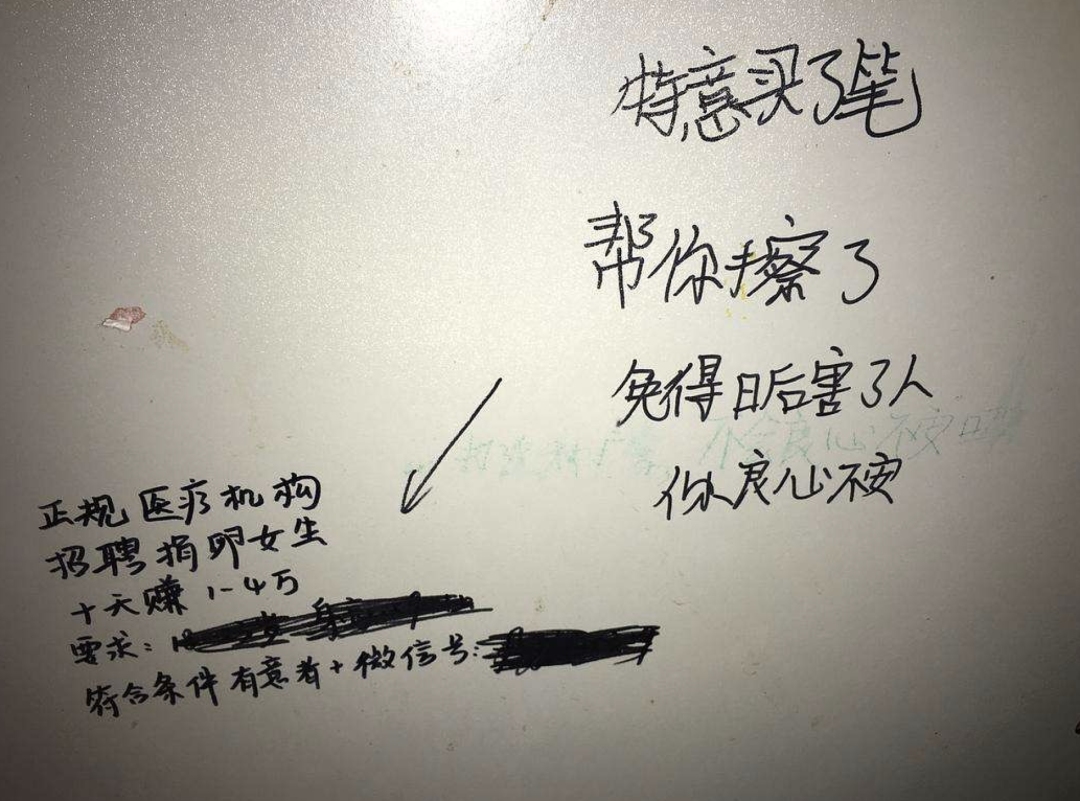 特意买了笔
帮你擦了
免得日后害了人
你良心不安
不会良心不安吗
正规医疗机构
招聘捐卵女生
十天赚1-4万
要求：
符合条件有意者+微信号：